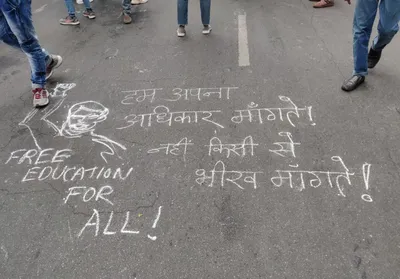 हम अपना
अधिकार माँगते!
नहीं किसी से
भीख माँगते!
FREE
EDUCATION
FOR
ALL!